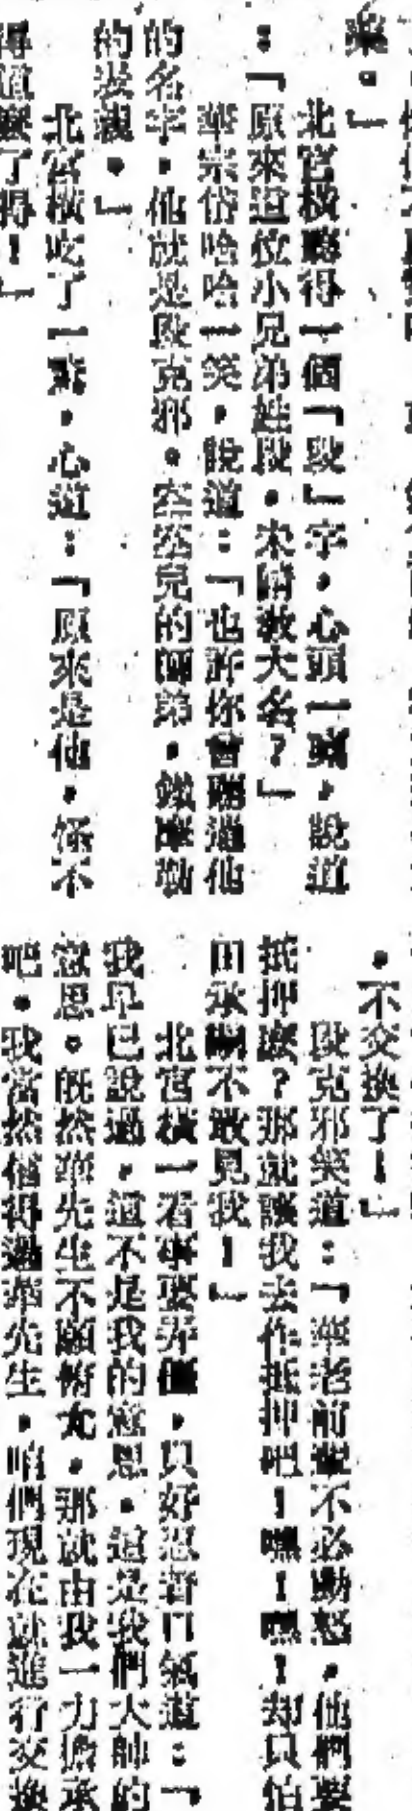 樂。」
北宮橫聽得一個「段」字,心頭一凜,說道
:「原來這位小兄弟姓段,未請敎大名?」
華宗岱哈哈一笑,說道:「也許你會聽過他
的名字,他就是段克邪。空空兒的師弟,鐵摩勒
的表親。」
北宮橫吃了一驚,心道:「原來是他,怪不
得這麼了得!」
,不交換了!」
段克邪笑道:「華老前輩不必動怒,他們要
抵押麼?那就讓我去作抵押吧!嘿!嘿!却只怕
田承嗣不敢見我!」
北宮橫一看事要弄僵,只好忍着口氣道:「
我早已說過,這不是我的意思,這是我們大帥的
意思。旣然華先生不願俯允,那就由我一力擔承
吧。我當然信得過華先生,咱們現在就進行交換